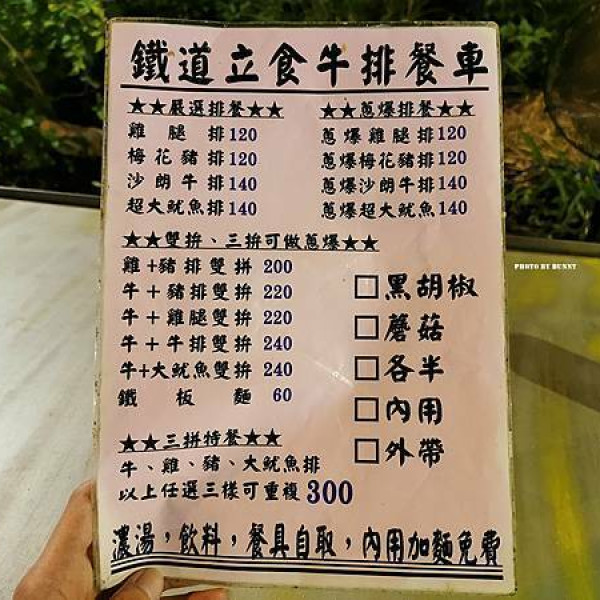 鐵道立食牛排餐車
★★嚴選排餐★★
雞腿排120
梅花豬排120
沙朗牛排140
超大魷魚排140
★★蔥爆排餐★★
蔥爆雞腿排120
蔥爆梅花豬排120
蔥爆沙朗牛排140
蔥爆超大魷魚140
★★雙拚、三拚可做蔥爆★★
雞+豬排雙拚 200
牛+豬排雙拚 220
牛+雞腿雙拚 220
牛+牛排雙拚 240
牛+大魷魚雙拚 240
鐵板麵 60
□黑胡椒
□蘑菇
□各半
□內用
□外帶
★★三拼特餐★★
牛、雞、豬、大魷魚排
以上任選三樣可重複300
濃湯,飲料,餐具自取,內用加麵免費
PHOTO BY BUNNY